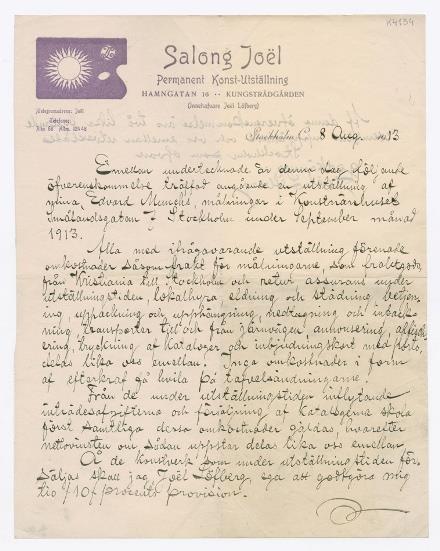 K4194
Salong Joël
Permanent Konst-Utställning
HAMNGATAN 16 · · KUNGSTRÄDGÅRDEN
(Innehafvare Joël Löfberg)
Telegramadress: Joël
Telefoner:
Stockholm C. 8 Aug. 1913
Emellan undertecknade är denna dag följande
öfverenskommelse träffad angående en utställning af
Edvard Munchs, målningar i Konstnärshuset
Smålandsgatan 7 Stockholm under September månad
1913.
Alla med ifrågavarande utställning förenade
omkostnader såsom frakt för målningarne, som fraktgods
från Kristiania till Stockholm och retur, assurans under
utställningstiden, lokalhyra, eldning och städning, belysning,
uppackning och upphängning, nedtagning och inpackning,
transporter till och från järnvägen, annonsering,
tryckning af kataloger och inbjudningskort med porto,
delas lika oss emellan. Inga omkostnader i form
af efterkraf få hvila på tafvelsändningarne.
Från de under utställningstiden influtande
inträdesafgifterna och försäljning af katalogerna skola
först samtliga dessa omkostnader gäldas, hvarefter
nettovinsten om sådan uppstår delas lika oss emellan
Å de konstverk som under utställningstiden för-
säljas skall jag, Joël Löfberg, ega att godtgöra mig
tio /10/ procents provision.